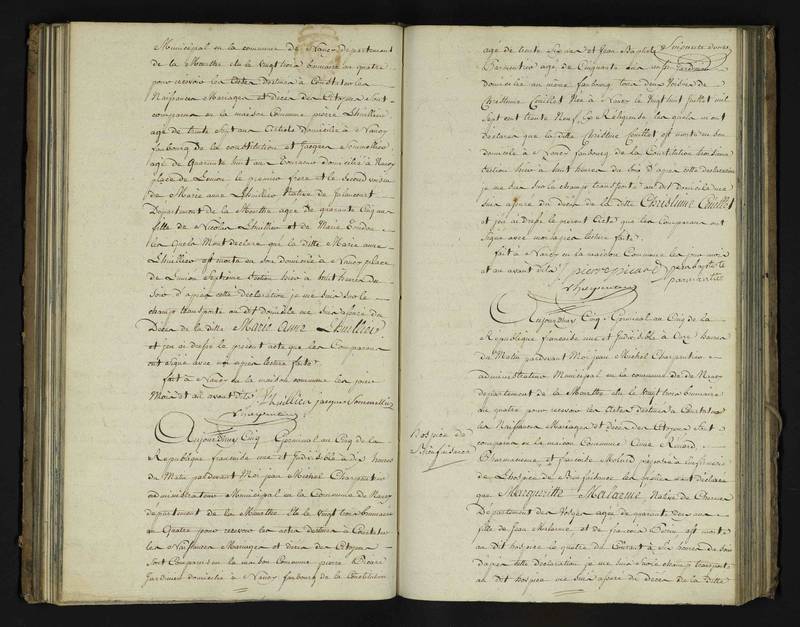 Municipal en la commune de Nancy département
de la Meurthe élu le vingt trois brumaire an quatre
pour recevoir les Actes destinés à Constater les
Naissances Mariages et décès des Citoyens Sont
comparus en la maison Commune pierre Lhuillier
agé de trente sept ans Artiste domicilié a Nancy
faubourg de la constitution et Jacques Sommellier
agé de quarante huit ans domicilié à Nancy
place de le premier frere et le Second voisin
de Marie anne Lhuillier Native de
Département de la Meurthe agée de quarante Cinq ans
fille de Nicolas Lhuillier et de Marie
les quels M'ont déclaré que la ditte Marie anne
Lhuillier est morte en son domicile à Nancy place
de Section hier à huit heures du
Soir d'après cette déclaration je me suis sur le
champ transporté au dit domicile me suis assuré du
Décès de la ditte Marie Anne Lhuillier
et j'en ai dressé le présent acte que les Comparans
ont signé avec moi après lecture faite
fait à Nancy de la maison commune les jours
Mois et an avant dits Lhuillier jacques Sommellier
Charpentier
Aujourd'hui Cinq Germinal an Cinq de la
République française une et Indivisible à dix heures
du Matin pardevant Moi jean Michel Charpentier
administrateur Municipal en la Commune de Nancy
département de la Meurthe élu le vingt trois brumaire
an Quatre pour recevoir les actes destinés à Constater
les Naissances Mariages et décès des Citoyens
Sont Comparus en la maison Commune pierre Picard
Jardinier domicilié à Nancy faubourg de la Constitution
agé de trente six ans et Jean Baptiste
Parmentier agé de Cinquante six ans Jardinier
domicilié au même faubourg tous deux Voisins de
Christinne Couillet Née à Nancy le Vingt huit juillet mil
Sept cent trente Neuf, Ex Religieuse les quels m'ont
déclaré que la ditte Christine Couillet est morte en son
domicile à Nancy faubourg de la Constitution troisieme
Section hier à huit heures du Soir d'après cette déclaration
je me suis sur le champ transporté au dit domicile me
suis assuré du décès de la ditte Christinne Couillet
et j'en ai dressé le présent Acte que les Comparans ont
Signé avec moi après lecture faite
fait à Nancy en la maison Commune les jour mois
et an avant dits pierre picard jean baptiste
Charpentier parmantié
Aujourd'hui Cinq Germinal an Cinq de la
République française une et Indivisible à Onze heures
du Matin pardevant Moi jean Michel Charpentier
administrateur Municipal en la commune de Nancy
département de la Meurthe élu le vingt trois brumaire
an quatre pour recevoir les Actes destinés à Constater
les Naissances Mariages et décès des Citoyens Sont
Hospice de
Bienfaisance
comparus en la maison Commune Anne
et françoise préposée à l'infirmerie
de L'hospice de Bienfaisance les quelles m'ont déclaré
que Marguerite Malarmé Native de Charmes
Département des Vosges agée de quarante deux ans
fille de Jean Malarmé et de françoise est morte
au Dit hospice le quatre du Courant à Six heures du Soir
d'après cette déclaration je me suis sur le champ transporté
au dit hospice me suis assuré du décès de la ditte